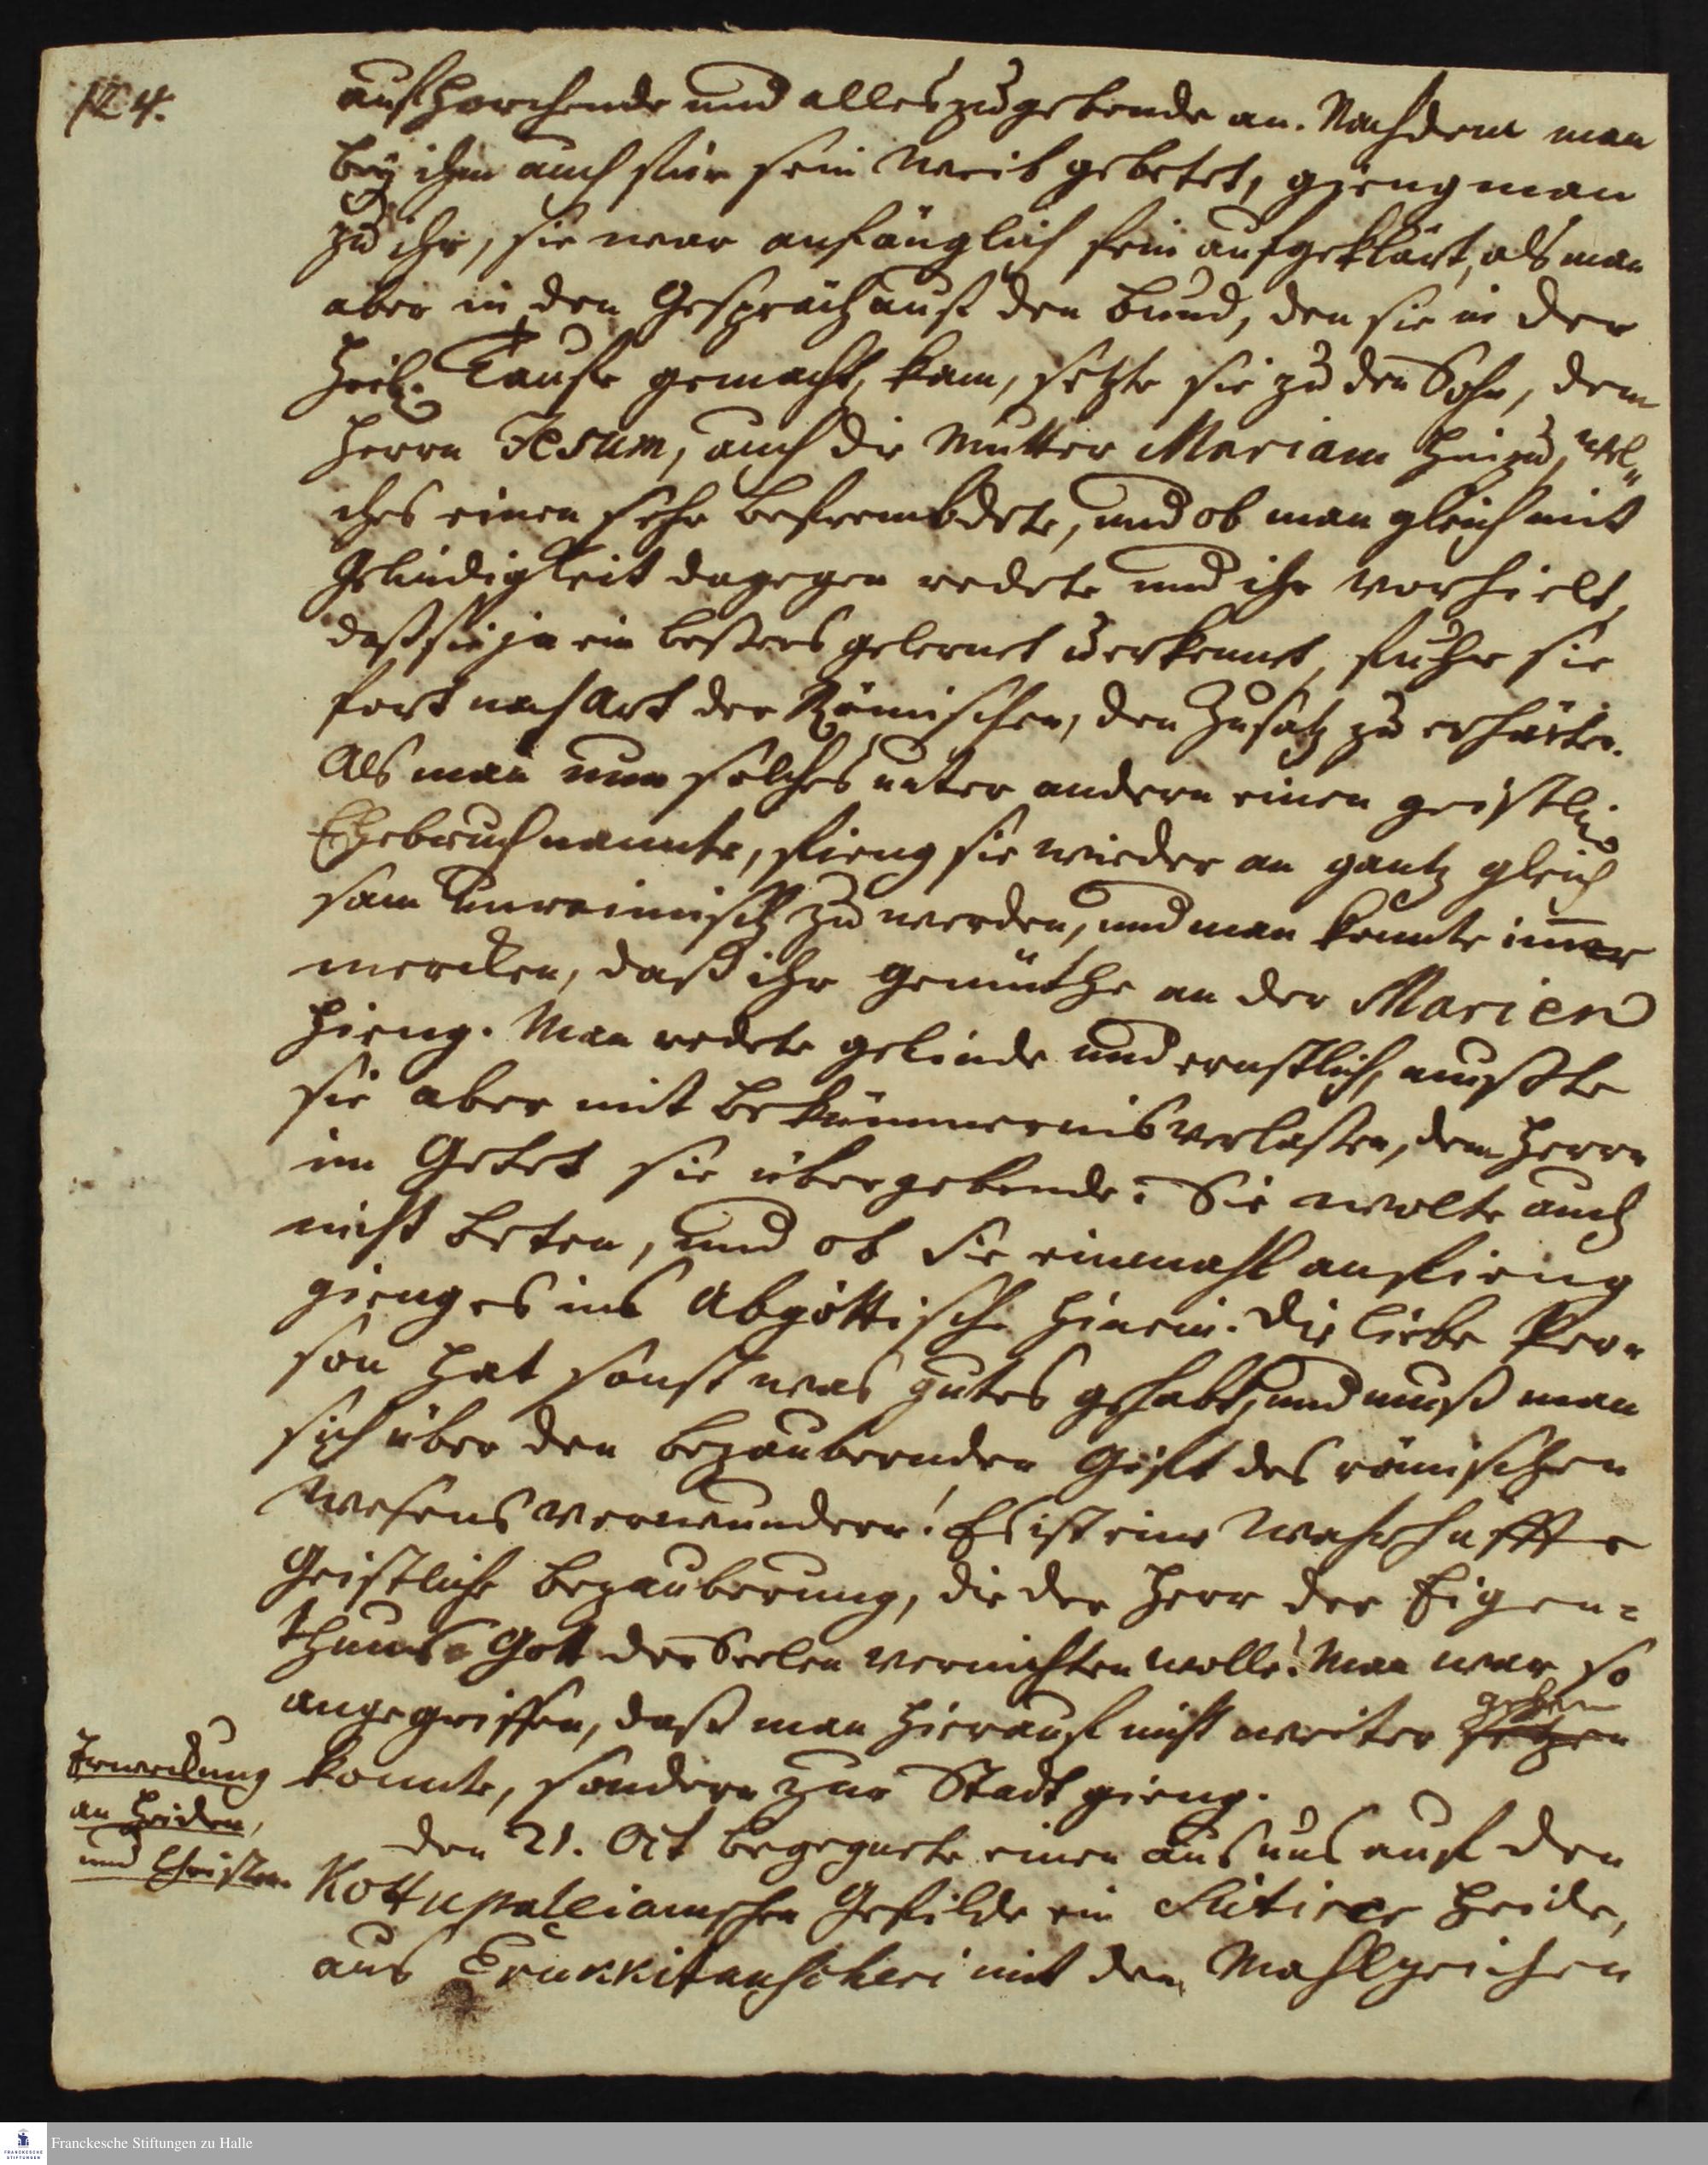 124.
aufhorchende und alles zugebende an. Nachdem man
bey ihm auch für sein Weib gebetet, gieng man
zu ihr, sie war anfänglich fein aufgeklärt, als man
aber in den Gespräch auf den Bund, den sie in der
Heil. Taufe gemacht, kam, setzte sie zu den Sohn, dem
Herrn Jesum, auch die Mutter Mariam hinzu, wel-
ches einen sehr befrembdete, und ob man gleich mit
Gelindigkeit dagegen redete und ihr vorhielt,
daß sie ja ein beßers gelernet u erkennet, fuhr sie
fort nach Art der Römischen, den Zusatz zu erhärten.
Als man nun solches unter andern einen geistlichen
Ehebruch nannte, fieng sie wieder an gantz gleich
sam zu werden, und man konnte immer
mercken, daß ihr gemüthe an der Marien
hieng. Man redete gelinde und ernstlich, mußte
sie aber mit Bekümmernis verlaßen, dem Herrn
im Gebet sie übergebende. Sie wolte auch
nicht beten, und ob sie einmahl anfieng
gieng es ins Abgöttische hinein. Die liebe Per-
son hat sonst was gutes gehabt, und muß man
sich über den bezaubernden Gift des römischen
Wesens verwundern! Es ist eine wahrhaffte
Geistliche Bezauberung, die der Herr der Eigen-
thums Gott der Seelen vernichten wolle! Man war so
angegriffen, daß man hierauf nicht weiter gehen
Erweckung
an Heiden,
und Christen.
konnte, sondern zur Stadt gieng.
Den 21. Oct begegnete einen aus uns auf den
Kottupaleiamschen Gefilde ein Sittirer Heide,
aus Erukkitanscheri mit den Mahlzeichen
Franckesche Stiftungen zu Halle